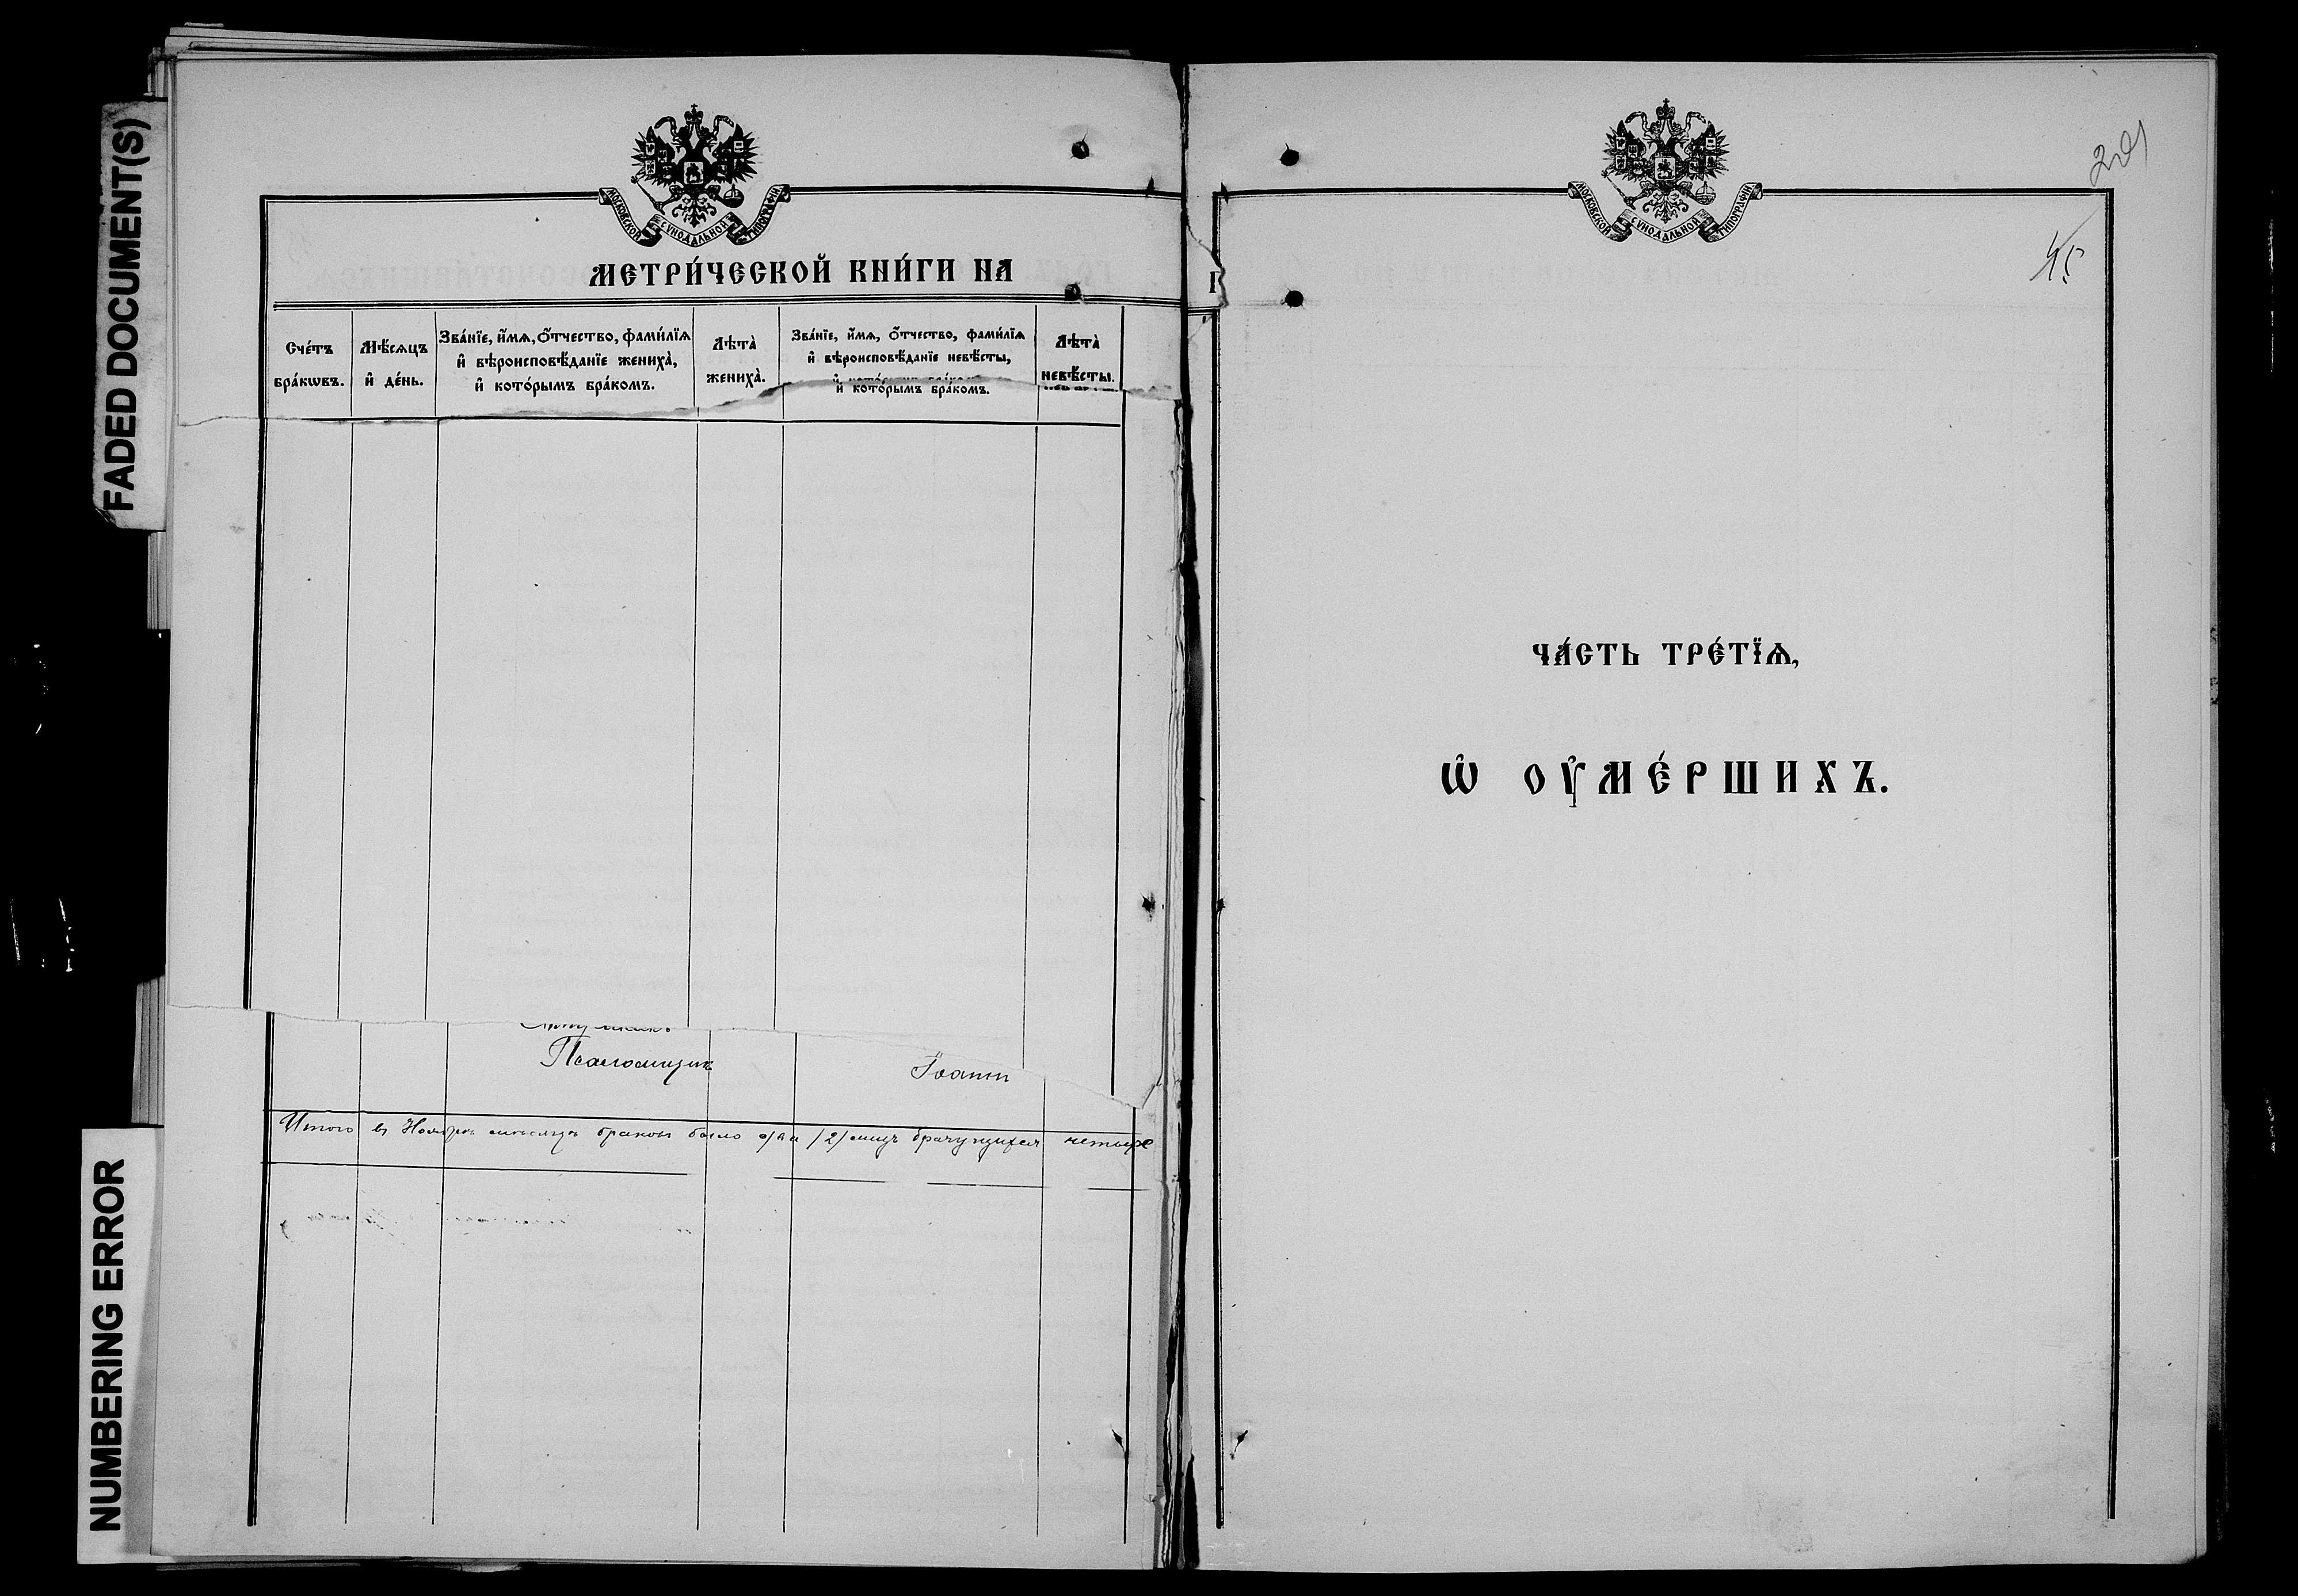 FADED DOCUMENT(S)
NUMBERING ERROR
МОСКОВСКОЙ СѴНОДАЛЬНОЙ ТИПОГРАФІИ
МЕТРИ́ЧЕСКОЙ КНИ́ГИ НА
Сче́тъ
бра́кѡвъ.
Мѣ́сѧцъ
и҆ де́нь.
Зва́нїе, и҆́мѧ, ѻ҆́тчество, фами́лїѧ
и҆ вѣроисповѣ́данїе жениха̀,
и҆ кото́рымъ бра́комъ.
Лѣта̀
жениха̀.
Зва́нїе, и҆́мѧ, ѻ҆́тчество, фами́лїѧ
и҆ вѣроисповѣ́данїе невѣ́сты,
и҆ кото́рымъ бра́комъ.
Лѣта̀
невѣ́сты.
Псаломщикъ
Іоаннъ
Итого въ Ноябрѣ мѣсяцѣ браковъ было два /2/ лицъ брачущихся четыре
МОСКОВСКОЙ СѴНОДАЛЬНОЙ ТИПОГРАФІИ
45
Г
ЧА́СТЬ ТРЕ́ТЇѦ,
Ѡ҆ ОУ҆МЕ́РШИХЪ.